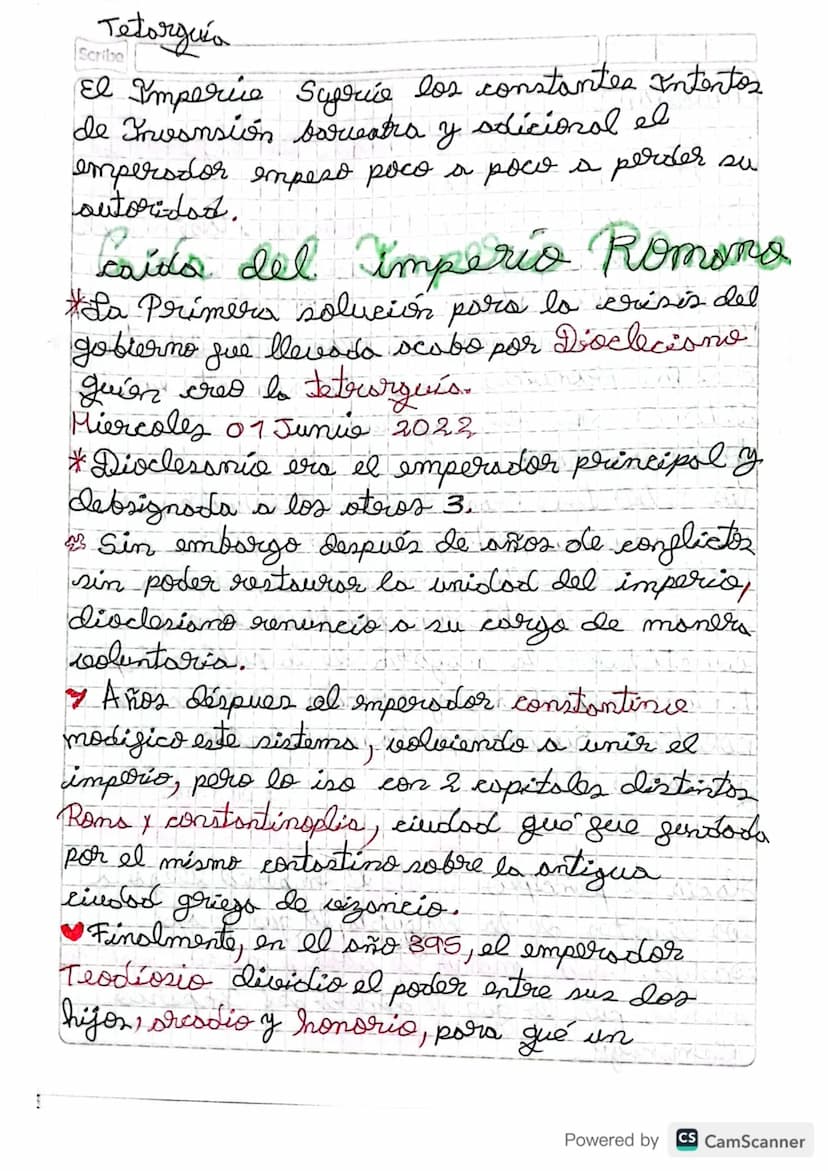 Tetorguía
Scribe
El Imperio Sugrio los constantes Intentos
de Invansión barveatra y adicional el
emperador empeso poco a poco a perder su
autoridad.
caída del imperio Romano
*La Primera solución para la crisis del
gobierno gue llevada acabo por Diocleciano
guién creo la tetrarguís.
Miercoles 01 Junio 2022
*Dioclesanío era el emperador principal y
debsignada a los otros 3.
Sin embargo después de años de conflictos
sin poder restaurar la unidad del imperio,
dioclesiano renuncio a su cargo de manera
voluntaria.
Años déspues el emperador constantino
modigico este sistema, volviendo a unir el
imperio, pero lo iso con 2 capitales distintos
Roma y constantinoplia, ciudad gué gue gundada
por el mismo contostino sobre la antigua
ciudad griega de vizancio.
Finalmente, en el año 395, el emperador
Teodiosio dividio el poder entre sus dos
hijos, arcadio y honorio, para gué un
Powered by CS CamScanner